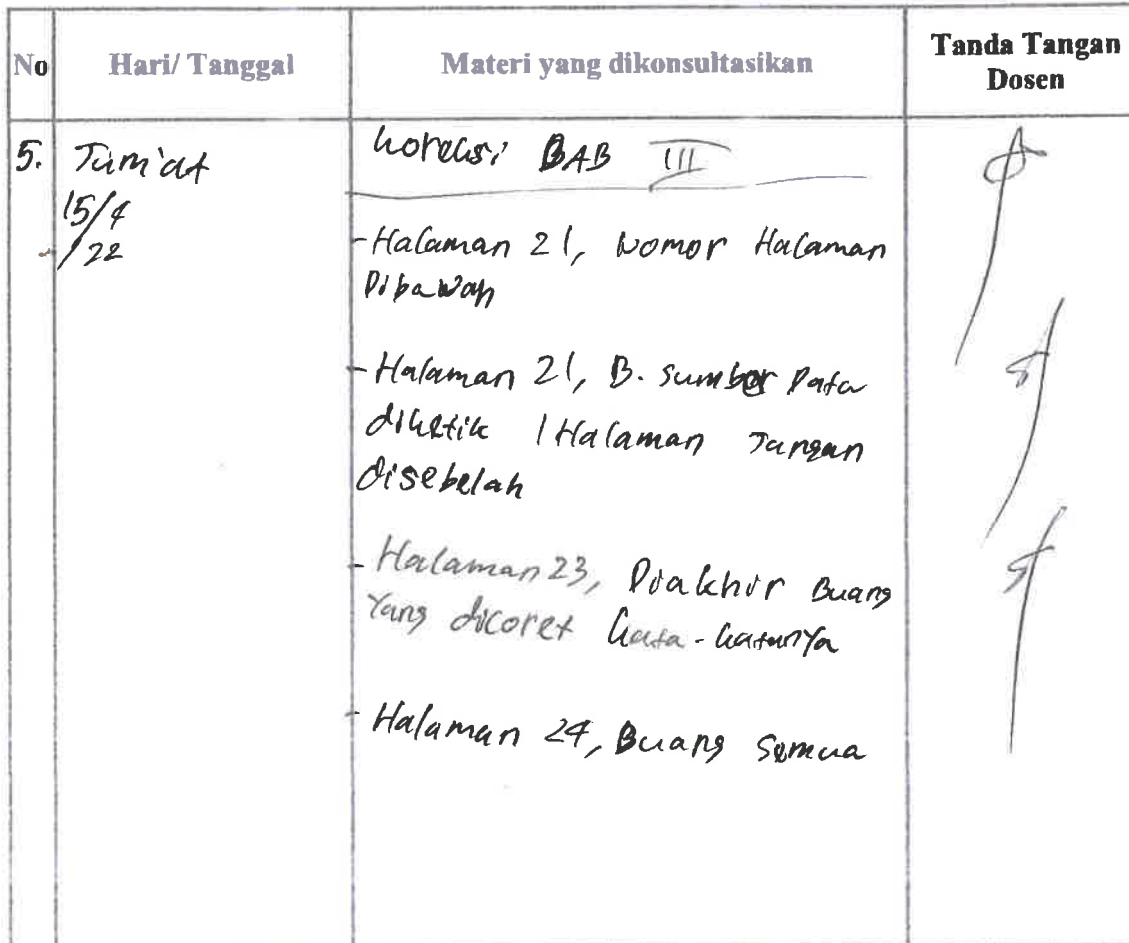 No Hari/ Tanggal Materi yang dikonsultasikan Tanda Tangan
Dosen
5. Jum'at
15/4
/22
Koreksi BAB III
- Halaman 21, Nomor Halaman
Dibawah
- Halaman 21, B. Sumber Data
diketik 1 Halaman Jangan
disebelah
- Halaman 23, Diakhir Buang
Yang dicoret kata-katanya
- Halaman 24, Buang Semua